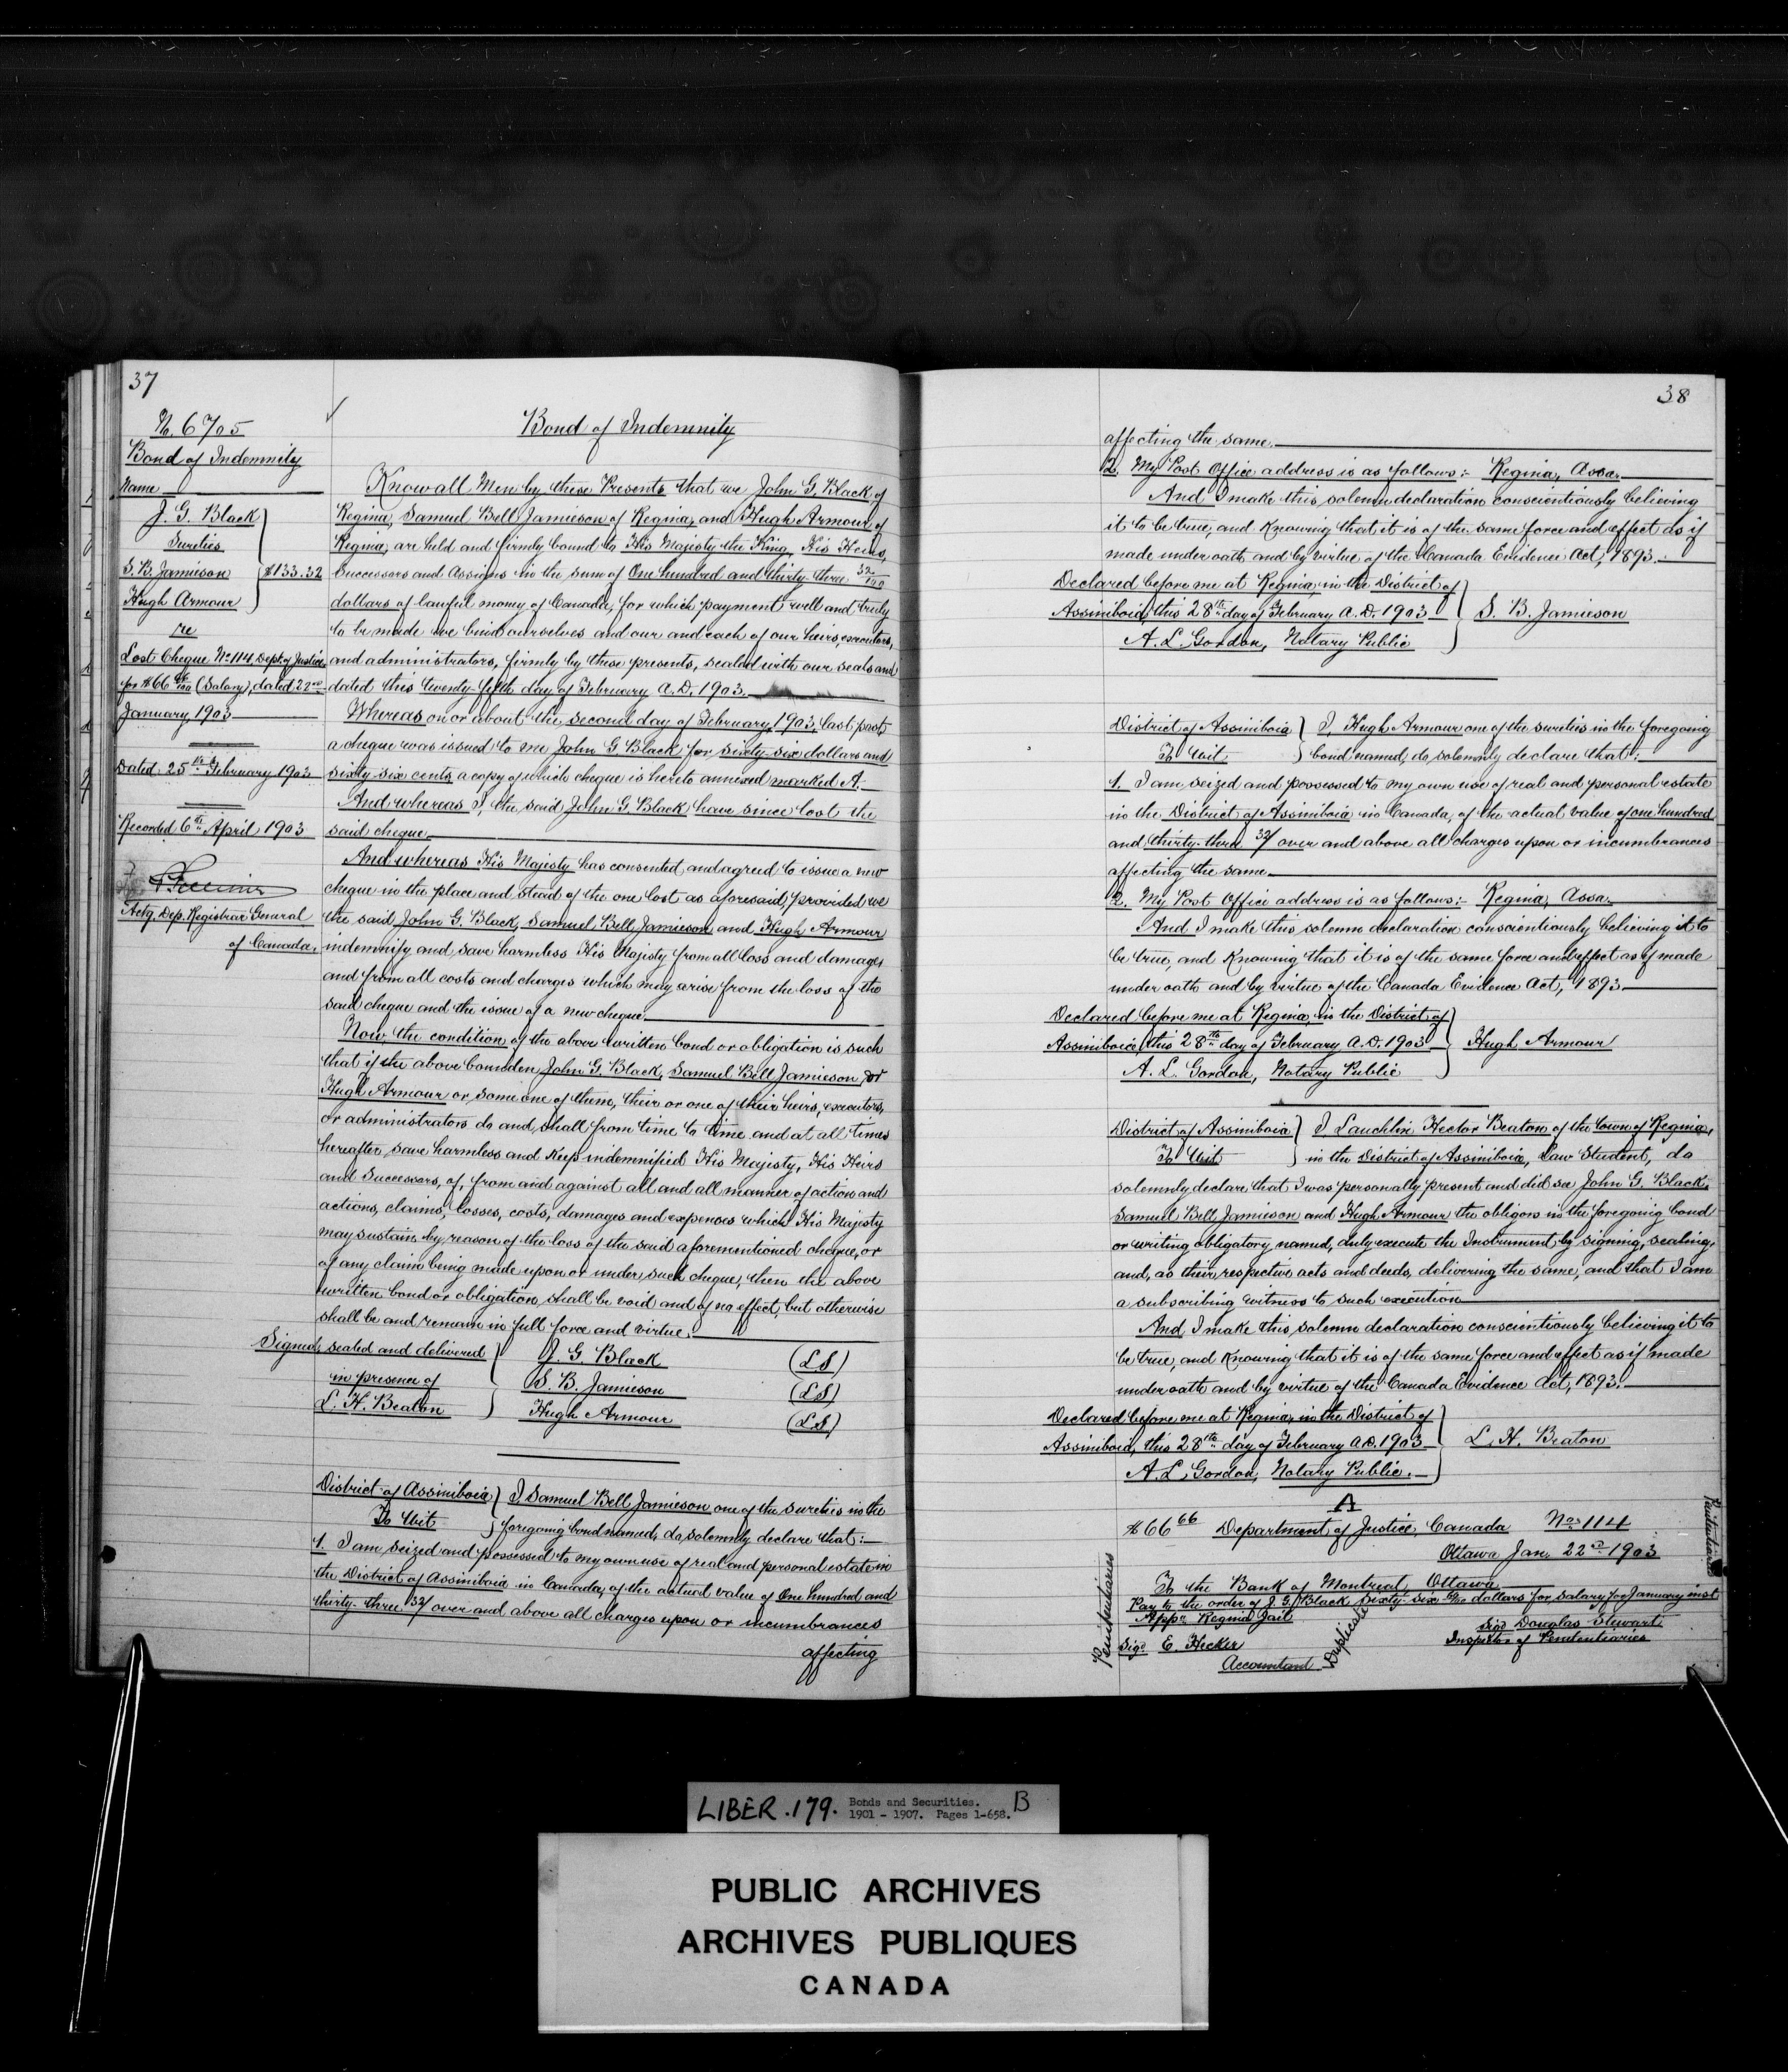 37
No. 6705
Bond of Indemnity
Name
J. G. Black
Sureties
S. B. Jamieson $133.32
Hugh Armour
re
Lost Cheque No 114, Dept. of Justice,
for $66 66/100 (Salary), dated 22nd
January, 1903
Dated 25th February 1903
Recorded 6th April 1903
Actg. Dep. Registrar General
of Canada.
Bond of Indemnity
Know all Men by these Presents that we John G. Black of
Regina, Samuel Bell Jamieson of Regina, and Hugh Armour of
Regina, are held and firmly bound to His Majesty the King, His Heirs,
Successors and Assigns in the sum of One hundred and thirty three 32/100
dollars of lawful money of Canada, for which payment well and truly
to be made we bind ourselves and our and each of our heirs, executors,
and administrators, firmly by these presents, sealed with our seals and
dated this twenty-fifth day of February A.D. 1903.
Whereas on or about the second day of February, 1903, last past,
a cheque was issued to me John G Black for sixty-six dollars and
sixty-six cents, a copy of which cheque is hereto annexed marked A.
And whereas I, the said John G. Black have since lost the
said cheque
And whereas His Majesty has consented and agreed to issue a new
cheque in the place and stead of the one lost as aforesaid, provided we
the said John G. Black, Samuel Bell Jamieson and Hugh Armour
indemnify and save harmless His Majesty from all loss and damages
and from all costs and charges which may arise from the loss of the
said cheque and the issue of a new cheque.
Now the condition of the above written bond or obligation is such
that if the above bounden John G. Black, Samuel Bell Jamieson or
Hugh Armour or some one of them, their or one of their heirs, executors,
or administrators do and shall from time to time and at all times
hereafter save harmless and keep indemnified His Majesty, His Heirs
and Successors, of, from and against all and all manner of action and
actions, claims, losses, costs, damages and expences which His Majesty
may sustain by reason of the loss of the said aforementioned cheque, or
of any claim being made upon or under such cheque, then the above
written bond or obligation shall be void and of no effect, but otherwise
shall be and remain in full force and virtue.
Signed, sealed and delivered J. G. Black (LS)
in presence of S. B. Jamieson (LS)
L. H. Beaton Hugh Armour (LS)
District of Assiniboia I, Samuel Bell Jamieson one of the sureties in the
To Wit foregoing bond named, do solemnly declare that:—
1. I am seized and possessed to my own use of real and personal estate in
the District of Assiniboia in Canada, of the actual value of One hundred and
thirty-three 32/ over and above all charges upon or incumbrances
affecting
38
affecting the same.
2. My Post Office address is as follows:- Regina, Assa.
And I make this solemn declaration conscientiously believing
it to be true, and Knowing that it is of the same force and effect as if
made under oath and by virtue of the Canada Evidence Act, 1893.
Declared before me at Regina, in the District of
Assiniboia, this 28th day of February A.D. 1903 S. B. Jamieson
A. L. Gordon, Notary Public
District of Assiniboia I, Hugh Armour one of the sureties in the foregoing
To Wit bond named, do solemnly declare that:-
1. I am seized and possessed to my own use of real and personal estate
in the District of Assiniboia in Canada, of the actual value of one hundred
and thirty-three 32/ over and above all charges upon or incumbrances
affecting the same
2. My Post Office address is as follows:- Regina, Assa.
And I make this solemn declaration conscientiously believing it to
be true, and Knowing that it is of the same force and effect as if made
under oath and by virtue of the Canada Evidence Act, 1893
Declared before me at Regina, in the District of
Assiniboia, this 28th day of February A.D. 1903 Hugh Armour
A. L. Gordon, Notary Public
District of Assiniboia I, Lauchlin Hector Beaton of the town of Regina,
To Wit in the District of Assiniboia, Law Student, do
solemnly declare that I was personally present and did see John G. Black,
Samuel Bell Jamieson and Hugh Armour the obligors in the foregoing bond
or writing obligatory named, duly execute the Instrument by signing, sealing,
and, as their respective acts and deeds, delivering the same, and that I am
a subscribing witness to such execution
And I make this solemn declaration conscientiously believing it to
be true, and Knowing that it is of the same force and effect as if made
under oath and by virtue of the Canada Evidence Act, 1893.
Declared before me at Regina, in the District of
Assiniboia, this 28th day of February A.D. 1903 L. H. Beaton
A. L. Gordon, Notary Public.
A
$66 66 Department of Justice, Canada No 114
Ottawa Jan. 22nd 1903
To the Bank of Montreal, Ottawa
Pay to the order of J. G. Black Sixty-six 66/100 dollars for Salary for January inst
Appn Regina Jail Sigd Douglas Stewart
Sigd E. Hecker Inspector of Penitentiaries
Accountant
Penitentiaries
Duplicate
Penitentiaries
LIBER .179. Bonds and Securities. B
1901 - 1907. Pages 1-658.
PUBLIC ARCHIVES
ARCHIVES PUBLIQUES
CANADA